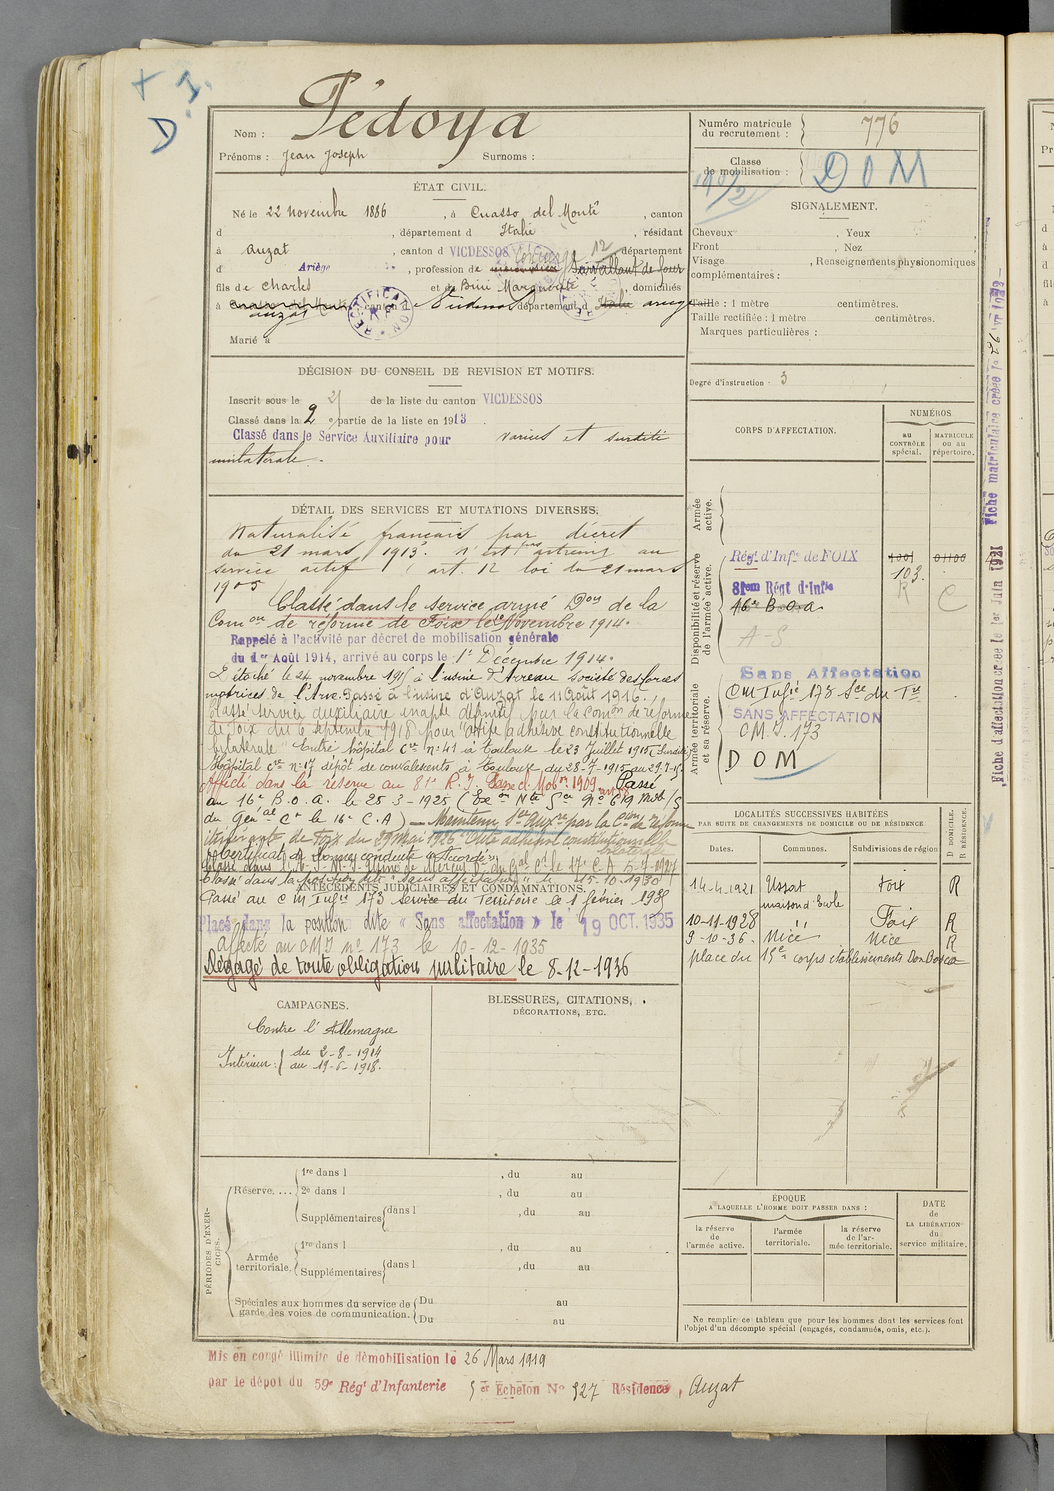 Nom : Pédoya
Prénoms : Jean Joseph Surnoms :
Numéro matricule du recrutement : 776
Classe de mobilisation : DOM
ÉTAT CIVIL.
Né le 22 novembre 1886, à Cuasso del Monte, canton
d , département d Italie, résidant
à Auzat, canton d VICDESSOS, département
d Ariège, profession de
fils de Charles et de Bini Marguerite, domiciliés
à Auzat canton Vicdessos département d Ariège
RECTIFICATION
Marié à
SIGNALEMENT.
Cheveux , Yeux
Front , Nez
Visage , Renseignements physionomiques
complémentaires :
Taille : 1 mètre centimètres.
Taille rectifiée : 1 mètre centimètres.
Marques particulières :
Degré d'instruction : 3
DÉCISION DU CONSEIL DE REVISION ET MOTIFS.
Inscrit sous le n° 21 de la liste du canton VICDESSOS
Classé dans la 2e partie de la liste en 1913
Classé dans le Service Auxiliaire pour varices et surdité
unilatérale.
DÉTAIL DES SERVICES ET MUTATIONS DIVERSES.
Naturalisé français par décret
du 21 mars 1913. N'est pas astreint au
service actif (art. 12 loi du 21 mars
1905
Classé dans le service armé Don de la
Comon de réforme de Foix le Novembre 1914.
Rappelé à l'activité par décret de mobilisation générale
du 1er Août 1914, arrivé au corps le 1er Décembre 1914.
Détaché le 24 novembre 1915 à l'usine d'Arreau Société des forces
motrices de l'Ave. Passé à l'usine d'Auzat le 11 Août 1916.
Classé service auxiliaire inapte définitif par la comon de réforme
de Foix du 6 septembre 1918 pour "otite adhésive constitutionnelle
bilatérale" Entré hôpital Cre n° 41 à Toulouse le 23 juillet 1915
Hôpital Cre n° 17 dépôt de convalescents à Toulouse du 28-7-1915 au 29-7-15
Affecté dans la réserve au 81e R.I. Classe de Mobon 1909 Passé
au 16e B.O.A. le 25-3-1925
du Génal Ct le 16e C.A) - Maintenu Sce Auxre par la Com de réforme
itinérante de Foix du 29 mai 1926 "Otite adhésive constitutionnelle
bilatérale"
Certificat de bonne conduite "Accordé"
Classé dans la position dite "sans affectation" le 15-10-1930
ANTÉCÉDENTS JUDICIAIRES ET CONDAMNATIONS.
Passé au C M Infie 173 Service du Territoire le 1 février 1928
Placé dans la position dite « Sans affectation » le 19 OCT. 1935
Affecté au C.M.I n° 173 le 10-12-1935
Dégagé de toute obligation militaire le 8-12-1936
CORPS D'AFFECTATION.
NUMÉROS
AU CONTRÔLE spécial.
MATRICULE ou au répertoire.
Armée active.
Disponibilité et réserve de l'armée active.
Régt d'Infie de FOIX 1001 01100
103.
81em Régt d'Infie R C
16e B.O.a
A-S
Armée territoriale et sa réserve.
Sans Affectation
CM Infie 178 Sce du Tre
SANS AFFECTATION
C.M.I. 173
DOM
Fiche d'affectation créée le 1er Juin 1921
Fiche matriculaire créée le
LOCALITÉS SUCCESSIVES HABITÉES
PAR SUITE DE CHANGEMENTS DE DOMICILE OU DE RÉSIDENCE
Dates. Communes. Subdivisions de région D DOMICILE. R RÉSIDENCE.
14-4-1921 Ussat Foix R
maison d'Ecole
10-11-1928 " Foix R
9-10-36. Nice Nice R
place du 15e corps établissements Don Bosco
CAMPAGNES.
Contre l'Allemagne
Intérieur : du 2-8-1914
au 19-6-1918.
BLESSURES, CITATIONS,
DÉCORATIONS, ETC.
PÉRIODES D'EXERCICES.
Réserve.... 1re dans l , du au
2e dans l , du au
Supplémentaires dans l , du au
Armée territoriale. 1re dans l , du au
Supplémentaires dans l , du au
Spéciales aux hommes du service de garde des voies de communication. Du au
Du au
ÉPOQUE
A LAQUELLE L'HOMME DOIT PASSER DANS :
la réserve de l'armée active.
l'armée territoriale.
la réserve de l'armée territoriale.
DATE de LA LIBÉRATION du service militaire.
Ne remplir ce tableau que pour les hommes dont les services font
l'objet d'un décompte spécial (engagés, condamnés, omis, etc.).
Mis en congé illimité de démobilisation le 26 Mars 1919
par le dépôt du 59e Régt d'Infanterie 5er Echelon No 327 Résidence, Auzat